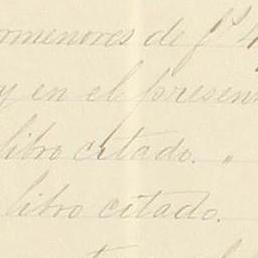 ormenores de fs 4
y en el presen
libro citado. "
libro citado.